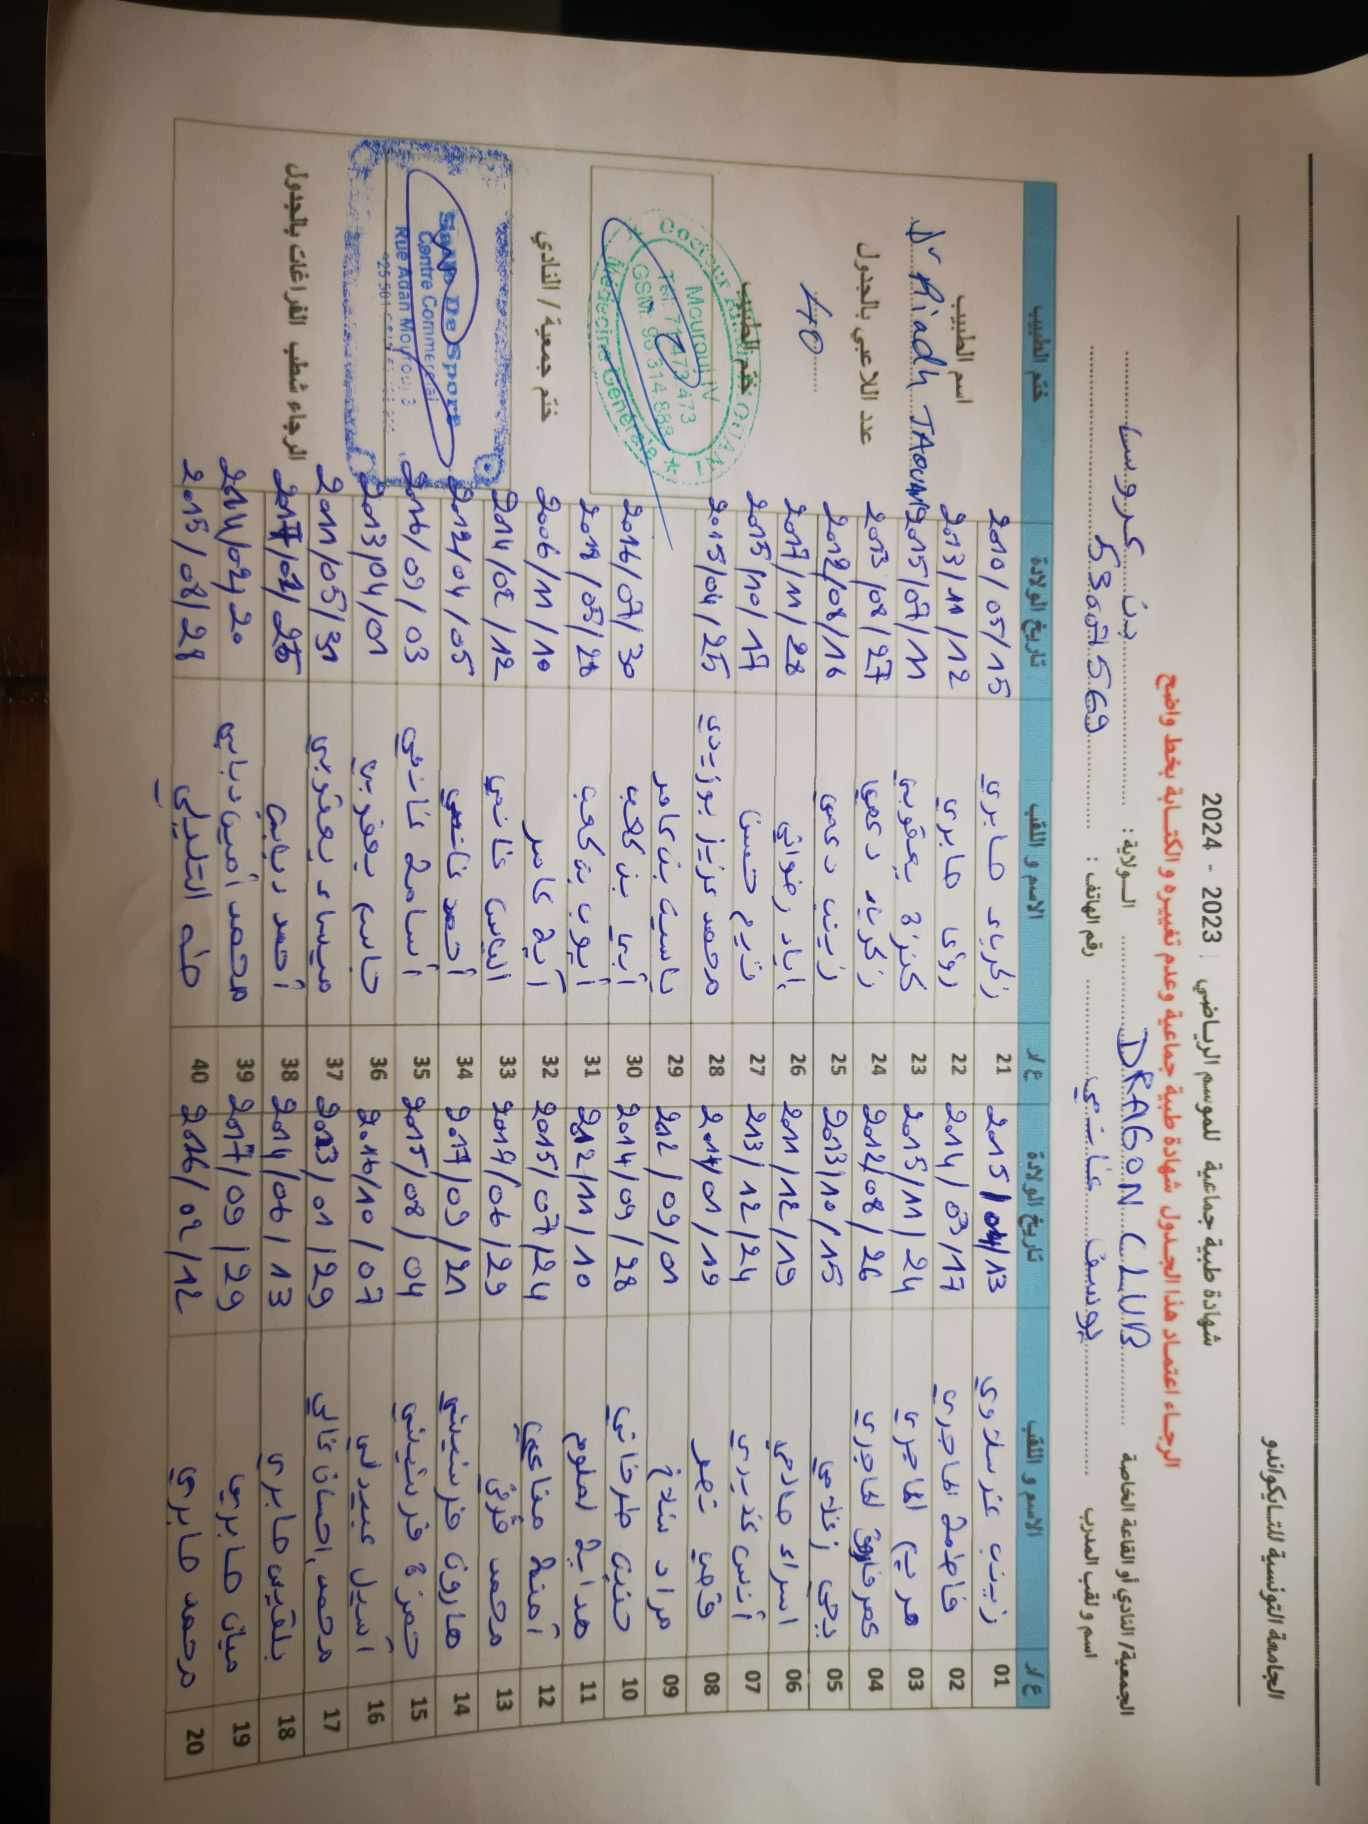 الجامعة التونسية للتايكواندو
شهادة طبية جماعية للموسم الرياضي : 2023 - 2024
الرجاء اعتماد هذا الجدول شهادة طبية جماعية وعدم تغييره والكتابة بخط واضح
الجمعية/ النادي أو القاعة الخاصة DRAGON CLUB الولاية : بن عروس
اسم و لقب المدرب يوسف رقم الهاتف : 53007569
ع/ر الاسم و اللقب تاريخ الولادة ع/ر الاسم و اللقب تاريخ الولادة ختم الطبيب
01 زينب 2015/04/13 21 زكرياء صابري 2010/05/15
02 فاطمة الماجري 2014/03/17 22 رؤى صابري 2013/11/12
03 مريم الماجري 2015/11/24 23 كنزة يعقوبي 2015/07/11
04 عمر فاروق الماجري 2012/08/26 24 زكرياء دعمي 2013/08/27
05 يحي زغلامي 2013/10/15 25 زينب دعمي 2012/08/16
06 اسراء صالحي 2011/12/19 26 إياد رضواني 2017/11/28
07 أنس غديري 2013/12/24 27 مريم حسن 2015/10/17
08 قصي نصر 2014/01/19 28 محمد عزيز بوزيدي 2015/04/25
09 مراد 2012/09/01 29 ياسين بن عامر
10 حنين طرخاني 2014/09/28 30 أبي بن كعب 2016/07/30
11 هداية لملوم 2012/11/10 31 أيوب بن كعب 2018/05/28
12 آمنة مناعي 2015/07/24 32 آية عامر 2006/11/10
13 محمد قرفي 2017/06/29 33 الياس غانمي 2014/02/12
14 هارون فرشيشي 2017/09/21 34 أحمد غانمي 2012/04/05
15 حمزة فرشيشي 2015/08/04 35 أسامة غانمي 2016/09/03
16 أسيل عبيدلي 2016/10/07 36 جاسم يعقوبي 2013/04/01
17 محمد احسان غالي 2013/01/29 37 ميساء يعقوبي 2011/05/31
18 بلقيس صابري 2014/06/13 38 أحمد ديابي 2017/02/25
19 ميار صابري 2017/09/29 39 محمد أمين ديابي 2014/02/20
20 محمد صابري 2016/02/12 40 طه التليلي 2015/08/28
اسم الطبيب
Dr Riadh JAOUANI
عدد اللاعبي بالجدول
40
ختم الطبيب
Docteur
Mourouj IV
Tel: 71 473 473
GSM: 98 314 883
Médecine Générale
ختم جمعية/ النادي
Salle De Sport
Centre Commercial
Rue Adan Mourouj 3
الرجاء شطب الفراغات بالجدول